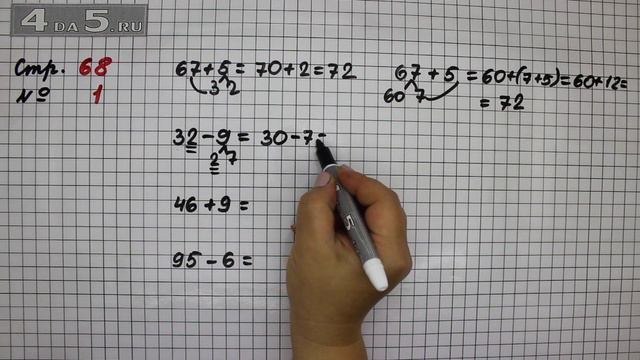 4 DA 5.RU
Стр. 68
№ 1
67 + 5 = 70 + 2 = 72
3 2
67 + 5 = 60 + (7 + 5) = 60 + 12 =
60 7
= 72
32 - 9 = 30 - 7 =
2 7
46 + 9 =
95 - 6 =